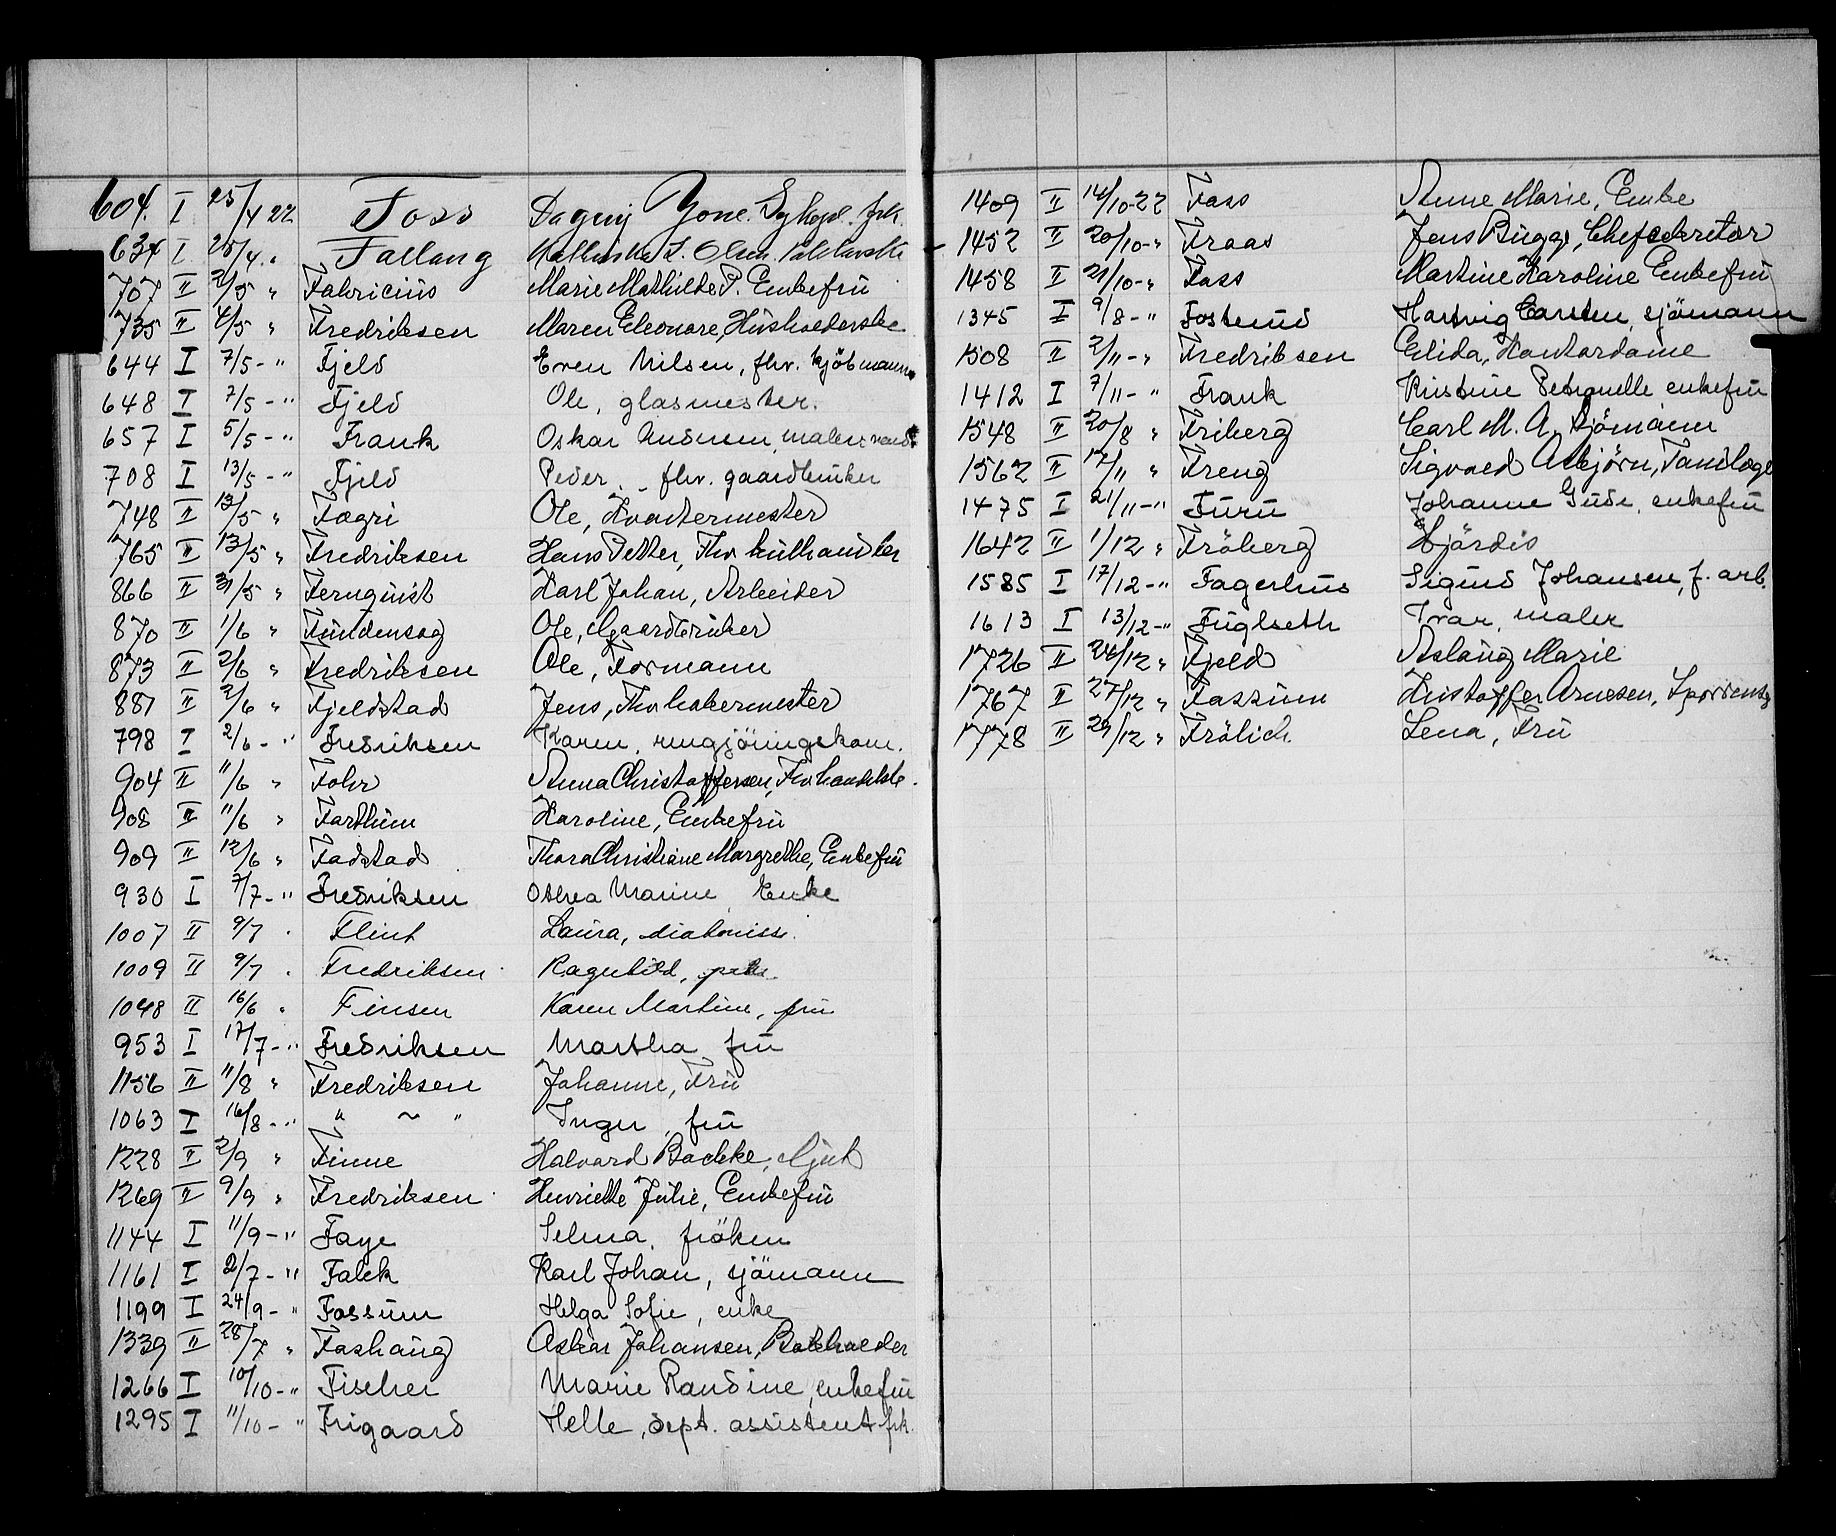 604. I 25/4 22 Foss Dagny Yone. Sykepl. frk.
634 I 25/4 „ Fallang
707 II 2/5 „ Fabricius Marie Mathilde P. Enkefru
735 II 4/5 „ Fredriksen Maren Eleonore, Husholderske
644 I 7/5 - " Fjeld Even Nilsen, fhv. kjöbmann
648 I 7/5 - " Fjeld Ole, glasmester.
657 I 5/5 - " Frank Oskar malersvend
708 I 13/5 - " Fjeld Peder, fhv. gaardbruker
748 II 13/5 „ Fægri Ole, Kvartermester
765 II 13/5 „ Fredriksen Hans Petter, Fhv. kulhandler
866 II 31/5 „ Fernquist Karl Johan, Arbeider
870 II 1/6 „ Fundensag Ole, Gaardbruker
873 II 2/6 „ Fredriksen Ole, Formann
887 II 2/6 „ Fjeldstad Jens, Fhv.
798 I 2/6 - " Fredriksen Karen, rengjöringskone.
904 II 11/6 „ Fohr Anna Christoffersen, Fhv. handelsb.
908 II 11/6 „ Farthum Karoline, Enkefru
909 II 12/6 „ Fadstad Thora Christiane Margrethe, Enkefru
930 I 7/7 - " Fredriksen Othea Marine Enke
1007 II 9/7 . Flint Laura, diakonisse.
1009 II 9/7 . Fredriksen Ragnhild,
1048 II 16/6 „ Finsen Karen Martine, fru
953 I 17/7 - " Fredriksen Martha fru
1156 II 11/8 „ Fredriksen Johanne, Fru
1063 I 16/8 - " " ~ " Inger, fru
1228 II 2/9 „ Finne Halvard Backke,
1269 II 9/9 „ Fredriksen Henriette Julie, Enkefru
1144 I 11/9 - " Faye Selma, fröken
1161 I 2/7 - " Falck Karl Johan, sjömann
1199 I 24/9 - " Fossum Helga Sofie, enke
1339 II 28/7 „ Foshaug Oskar Johansen, Bokholder
1266 I 10/10 - " Fischer Marie Randine, enkefru
1295 I 11/10 - " Frigaard Helle, dept. assistent frk.
1409 II 14/10-22 Foss Anne Marie, Enke
1452 II 20/10-„ Fraas Jens Bugge, Chefsekretær
1458 II 21/10-„ Foss Martine Karoline Enkefru
1345 I 9/8 - " Fostenud Hartvig Carsten, sjömann
1508 II 2/11-„ Fredriksen Elida, Kontordame
1412 I 7/11- " Frank Kristine Petronelle enkefru
1548 II 20/8 „ Friberg Carl M. A. Sjömann
1562 II 12/11 „ Freng Sigvard Asbjörn, Tandlæge
1475 I 21/11-" Furu Johanne Gude, enkefru
1642 II 1/12 „ Fröberg Hjördis
1585 I 17/12-" Fagerhus Sigurd Johansen, f. arb.
1613 I 13/12-" Fuglseth Ivar, maler
1726 II 24/12 „ Fjeld Aslaug Marie
1767 II 27/12 „ Fossum Kristoffer Arnesen,
1778 II 29/12 „ Frölich Lena, Fru